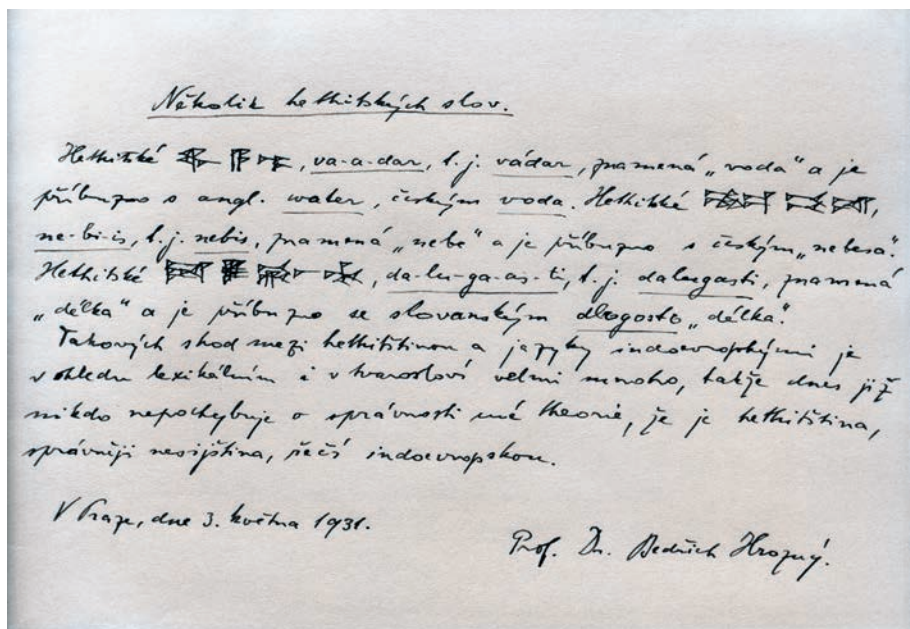 Několik hethitských slov.
Hethitské 𒉿 𒀀 𒁯, va-a-dar, t. j. vádar, znamená „voda“ a je
příbuzno s angl. water, českým voda. Hethitské 𒉈 𒁉 𒅖,
ne-bi-is, t. j. nebis, znamená „nebe“ a je příbuzno s českým „nebesa“.
Hethitské, da-lu-ga-as-ti, t. j. dalugasti, znamená
„délka“ a je příbuzno se slovanským dlogosto „délka“.
Takových shod mezi hethitštinou a jazyky indoevropskými je
v ohledu lexikálním i v tvarosloví velmi mnoho, takže dnes již
nikdo nepochybuje o správnosti mé theorie, že je hethitština,
správněji nesijština, řečí indoevropskou.
V Praze, dne 3. května 1931.
Prof. Dr. Bedřich Hrozný.